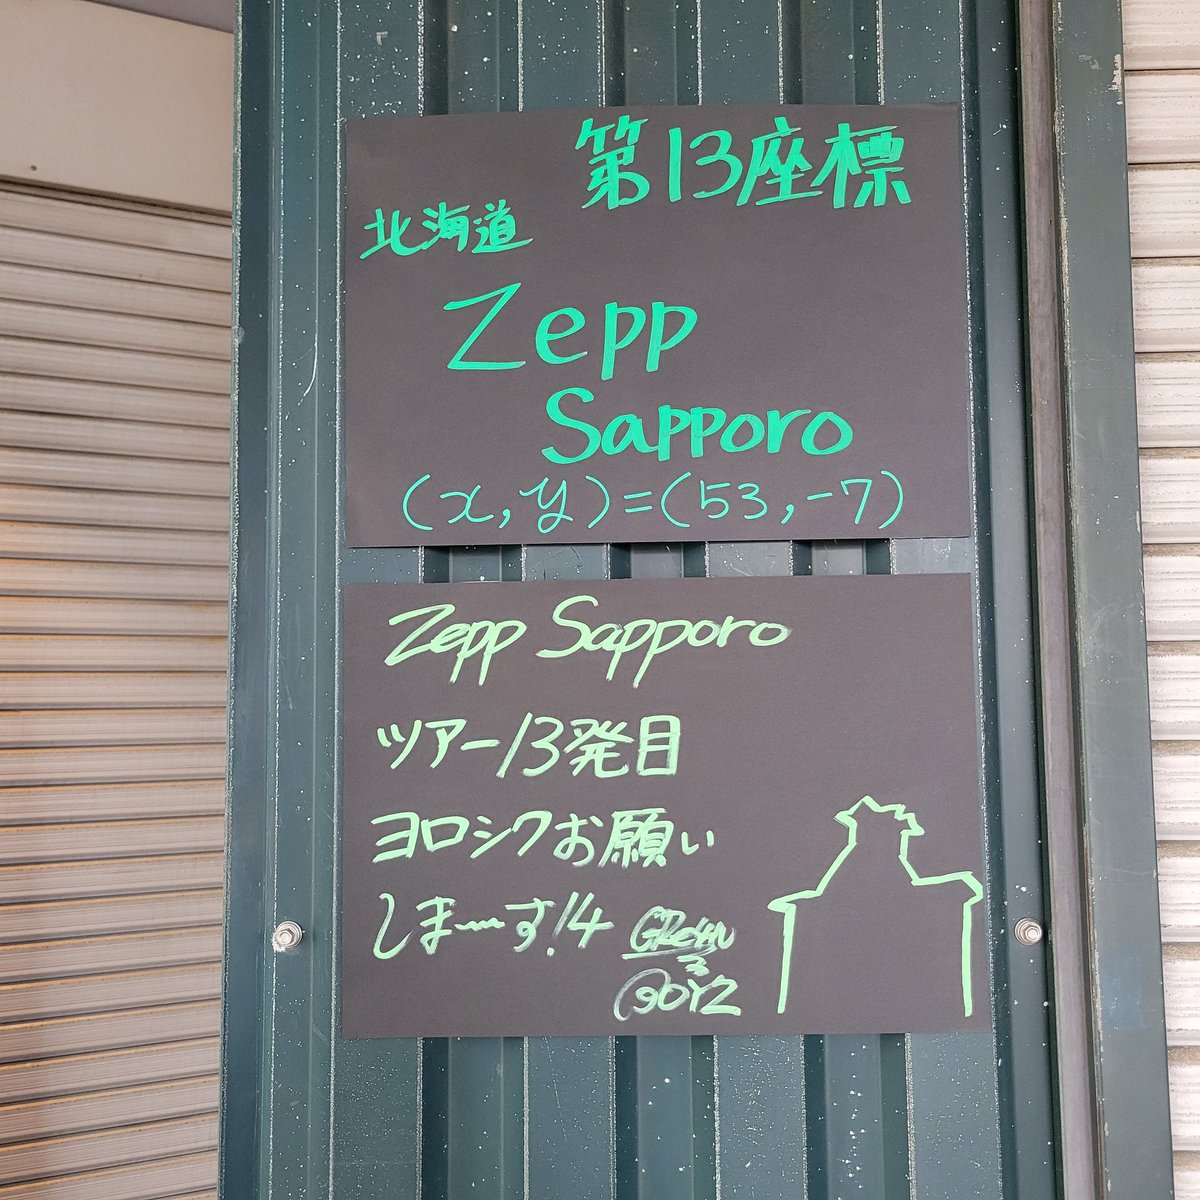 第13座標
北海道
Zepp
Sapporo
(x,y)=(53,-7)
Zepp Sapporo
ツアー13発目
ヨロシクお願い
しま〜〜す!4